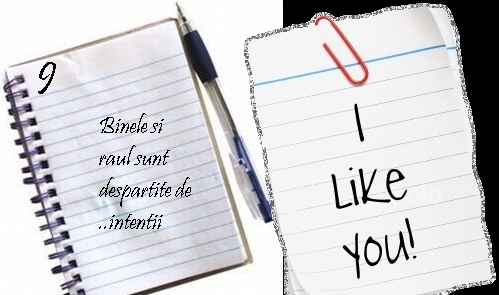 9
Binele si
raul sunt
despartite de
..intentii
I
Like
you!